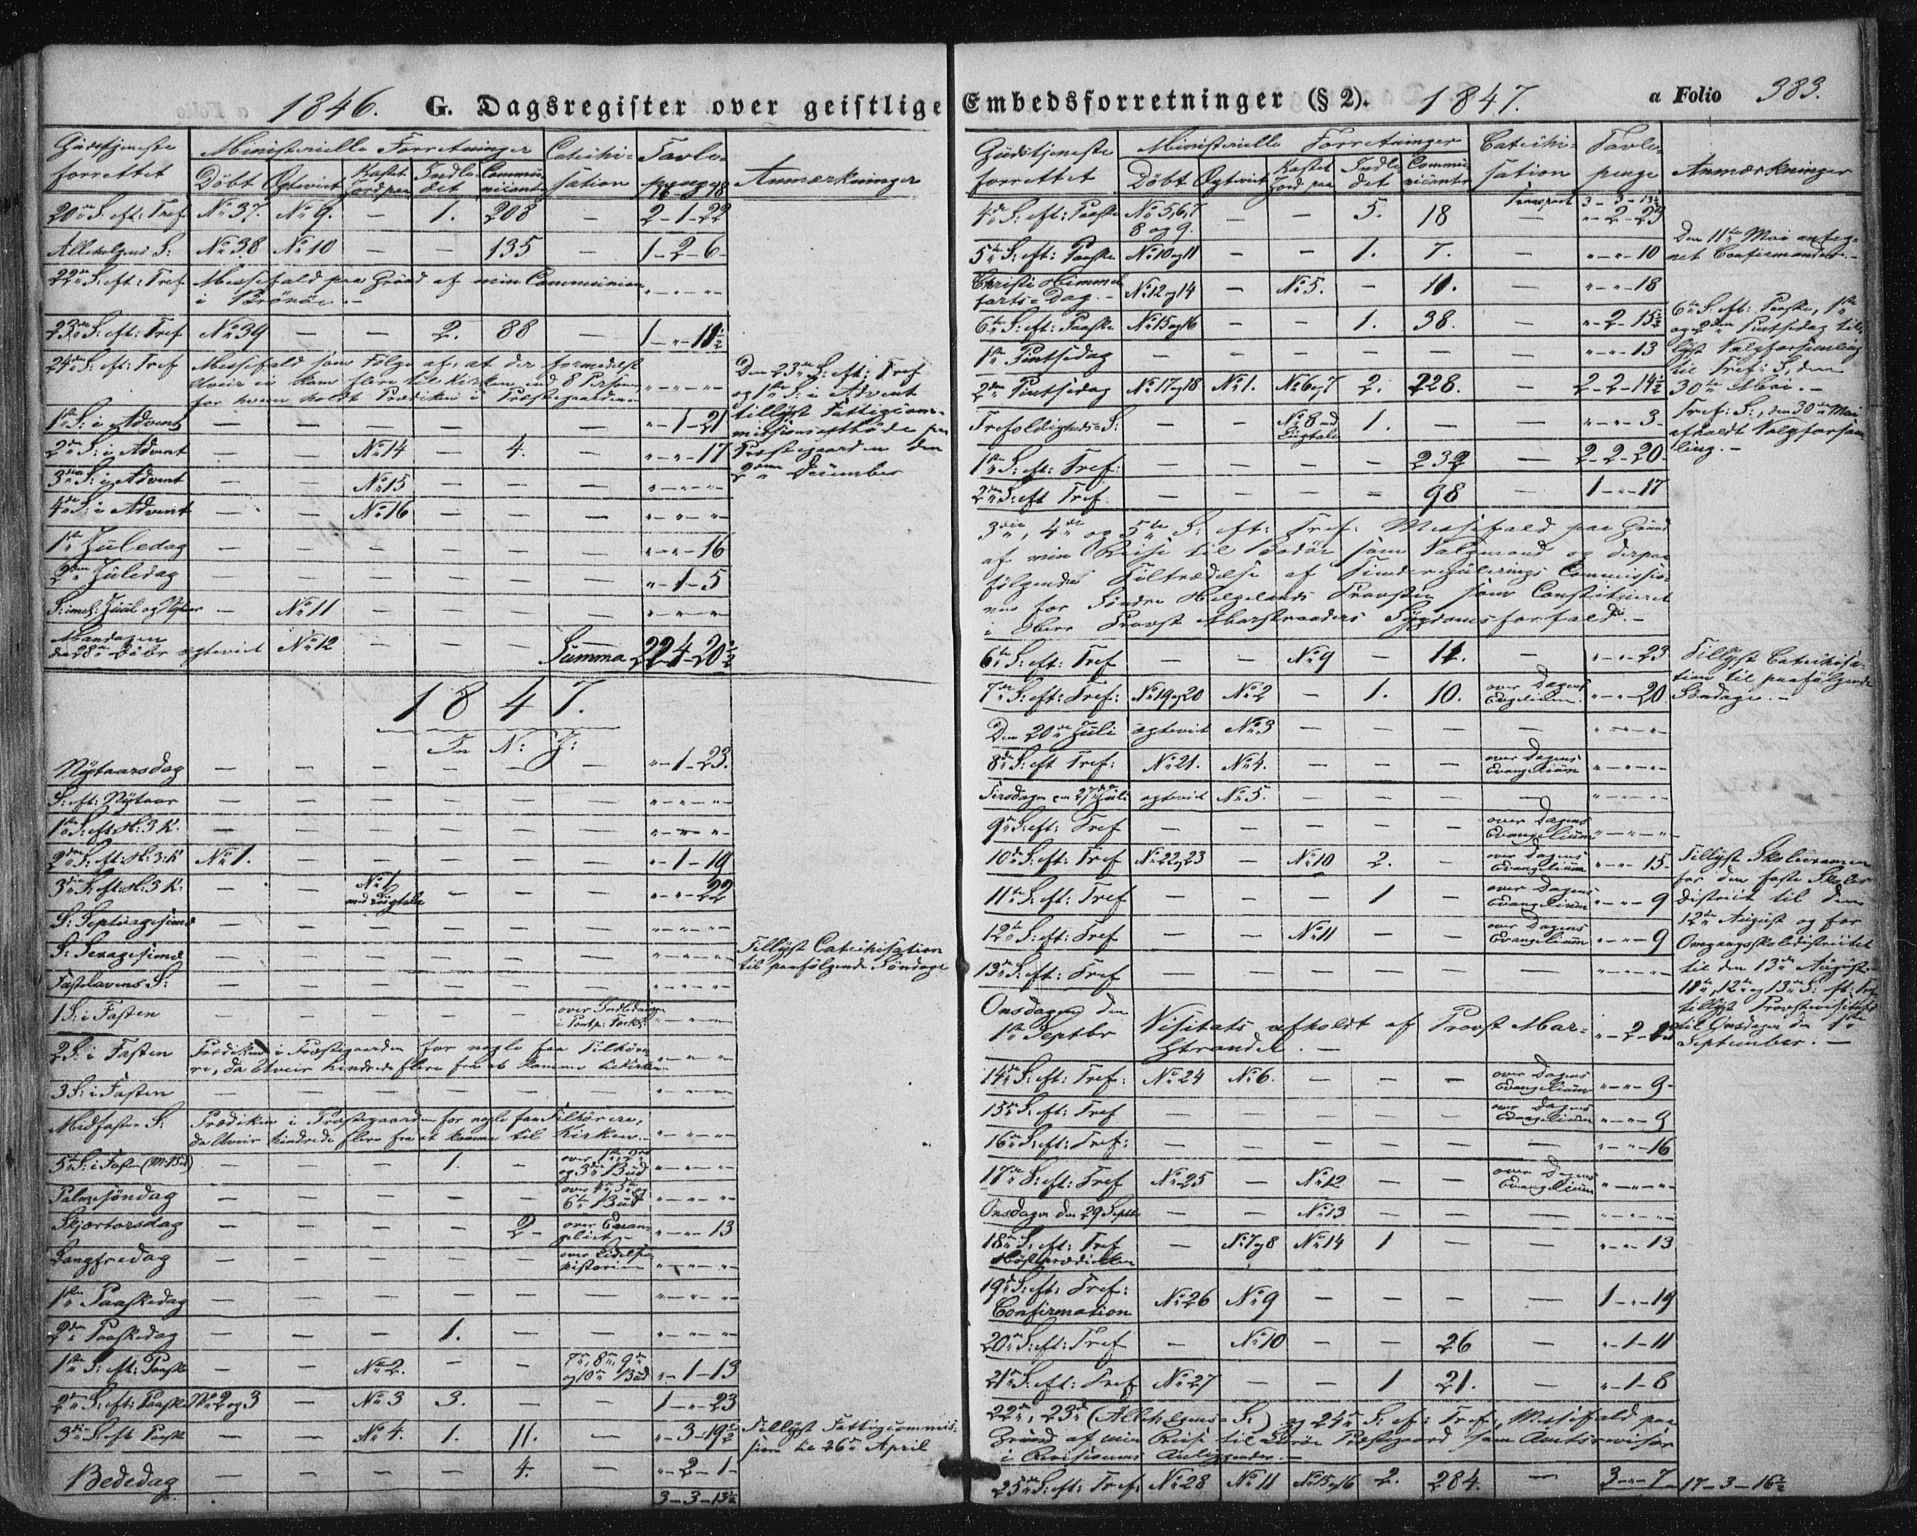 1846. G. Dagsregister over geistlige Embedsforretninger (§ 2). 1847. a Folio 383.
Gudstjeneste forrettet | Ministerielle Forretninger | Catechisation | Tavlepenge | Anmærkninger
Döbt | Ægteviet | Kastet Jord paa | Indledet | Communicanter
20de S. eft: Tref | No 37. | No 9. | — | 1. | 208 | — | 2-1-22
Allehelgens S: | No 38 | No 10 | — | — | 135 | — | 1-2-6
22de S. eft: Tref | Messefald paa Grund af min Communion
i Brönöe. —
23de S. eft: Tref | No 39 | — | — | 2. | 88 | — | 1-"-11½
24de S. eft: Tref | Messefald som Følge af, at der formedelst
Uveir ei kom flere til Kirken, end 8 Personer
for hvem holdt Prædiken i Præstegaarden
Den 23de S. eft: Tref
og 1ste S. i Advent
tillyst Fattigcommissionsmøde paa
Præstegaarden den
2den December
1ste S. i Advent | — | — | — | — | — | — | "-1-21
2den S. i Advent | — | — | No 14 | — | 4. | — | "-"-17
3die S. i Advent | — | — | No 15 | — | — | — | "-"-"
4de S. i Advent | — | — | No 16 | — | — | — | "-"-"
1ste Juledag | — | — | — | — | — | — | "-"-16
2den Juledag | — | — | — | — | — | — | "-1-5
S. imel: Juul og Nytaar | — | No 11 | — | — | — | — | "-"-"
Mandagen
den 28de Decbr ægteviet | No 12 | — | — | — | Summa 224-20½
1847.
I N: J:
Nytaarsdag | — | — | — | — | — | — | "-1-23.
S. eft: Nytaar | — | — | — | — | — | — | "-"-"
1ste S. eft: H. 3 K. | — | — | — | — | — | — | "-"-"
2den S. eft: H. 3. K | No 1. | — | — | — | — | — | "-1-19
3die S. eft: H. 3 K. | — | — | No 1 med Liigtale | — | — | — | "-"-22
S. Septuagesima | — | — | — | — | — | — | "-"-"
S. Sexagesima | — | — | — | — | — | — | "-"-" | Tillyst Catechisation
til paafølgende Søndage
Fastelavens S: | — | — | — | — | — | — | "-"-"
1 S. i Fasten | — | — | — | — | — | over Indledningen i Pontp: Forkl: | "-"-"
2 S. i Fasten | Prædiken i Præstegaarden for nogle faa Tilhørere,
da Uveir hindrede flere fra at komme til Kirken | "-"-"
3 S. i Fasten | — | — | — | — | — | — | "-"-"
Midfaste S. | Prædiken i Præstegaarden for nogle faa Tilhørere,
da Uveir hindrede flere fra at komme til Kirken. | "-"-"
5te S. i Fasten | — | — | — | 1. | — | over 1ste, 2det og 3die Bud | "-"-"
Palmesøndag | — | — | — | — | — | over 4de, 5te og 6te Bud | "-"-"
Skjærtorsdag | — | — | — | — | 2 | over Evangeliet | "-"-13
Langfredag | — | — | — | — | — | over Lidelseshistorien | "-"-"
1ste Paaskedag | — | — | — | — | — | — | "-"-"
2den Paaskedag | — | — | — | 1. | — | — | "-"-"
1ste S. eft: Paaske | — | — | No 2. | — | — | 7de, 8de, 9de og 10de Bud | "-1-13
2den S. eft: Paaske | No 2 og 3 | — | No 3 | 3. | — | — | 1-"-23
3die S. eft Paaske | — | — | No 4. | 1. | 11. | — | "-3-19½ | Tillyst Fattigcommission til 26de April
Bededag | — | — | — | — | 4. | — | "-2-1-
3-3-13½
Gudstjeneste forrettet | Ministerielle Forretninger | Catechisation | Tavlepenge | Anmærkninger
Döbt | Ægteviet | Kastet Jord paa | Indledet | Communicanter
Transport 3-3-13½
4de S. eft: Paaske | No 5, 6, 7 8 og 9. | — | — | 5. | 18 | — | "-2-23
5te S. eft: Paaske | No 10 og 11 | — | — | 1. | 7. | — | "-"-10 | Den 11te Mai antegnet Confirmander. —
Christi Himmelfarts-Dag. — | No 12 og 14 | — | No 5. | — | 11. | — | "-"-18
6te S. eft: Paaske | No 15 og 16 | — | — | 1. | 38. | — | "-2-15½ | 6te S. eft: Paaske, 1ste
og 2den Pintsedag tillyst Valgforsamling
til Tref: S, den
30te Mai. —
1ste Pintsedag | — | — | — | — | — | — | "-"-13
2den Pintsedag | No 17 og 18 | No 1. | No 6 og 7 | 2. | 228. | — | 2-2-14½
Trefoldigheds S: | — | — | No 8 med Liigtale | 1. | — | — | "-"-3 | Tref: S:, den 30te Mai
afholdt Valgforsamling. —
1ste S. eft: Tref: | — | — | — | — | 232 | — | 2-2-20
2den S. eft Tref | — | — | — | — | 98 | — | 1-"-17
3die, 4de og 5te S. eft: Tref: Messefald paa Grund
af min Reise til Bodöe som Valgmand og derpaa
følgende Tiltrædelse af Commissionen
for Søndre Helgelands Provstie som Constitueret
i Herr Provst Marstranders Sygdomsforfald. —
6te S. eft: Tref | — | — | No 9 | — | 11. | — | "-"-23 | Tillyst Catechisation til paafølgende
Søndage. —
7de S. eft: Tref: | No 19 og 20 | No 2 | — | 1. | 10. | over Dagens Evangelium. | "-"-20
Den 20de Juli ægteviet | No 3 | — | — | — | — | "-"-"
8de S. eft Tref: | No 21. | No 4. | — | — | — | over Dagens Evangelium | "-"-"
Tirsdagen den 27de Juli ægteviet | No 5. | — | — | — | — | "-"-"
9de S. eft: Tref | — | — | — | — | — | over Dagens Evangelium | "-"-"
10de S. eft: Tref | No 22 og 23 | — | No 10 | 2. | — | over Dagens Evangelium | "-"-15 | Tillyst Skoleexamen
for den faste Skoledistrict til den
12te August og for
Omgangsskoledistrictet
til den 13de August.
11te, 12te og 13de S. eft: Tref
tillyst Provstevisitats
til Onsdagen den 1ste
September. —
11te S. eft: Tref | — | — | — | 1 | — | over Dagens Evangelium | "-"-9
12te S. eft: Tref | — | — | No 11 | — | — | over Dagens Evangelium | "-"-9
13de S. eft: Tref | — | — | — | — | — | — | "-"-"
Onsdagen den
1ste Septbr | Visitats afholdt af Provst Marstrander. — | "-2-
14de S. eft: Tref: | No 24 | No 6. | — | — | — | over Dagens Evangelium | "-"-9
15de S. eft: Tref | — | — | — | — | — | over Dagens Evangelium | "-"-9
16de S. eft: Tref: | — | — | — | — | — | — | "-"-16
17de S. eft: Tref | No 25 | — | No 12 | — | — | over Dagens Evangelium | "-"-"
Onsdagen den 29 Septbr | — | — | No 13 | — | — | — | "-"-"
18de S. eft: Tref Høstprædiken | — | No 7 og 8 | No 14 | 1 | — | — | "-"-13
19de S. eft: Tref: Confirmation | No 26 | No 9 | — | — | — | — | 1-"-19
20de S. eft: Tref | — | No 10 | — | — | 26 | — | "-1-11
21de S. eft: Tref | No 27 | — | — | 1 | 21. | — | "-1-8
22de, 23de (Allehelgens S.) og 24de S. eft: Tref, Messefald paa
Grund af min Reise til Præstegaard som Amtsrevisor
i Revisions Anliggender. —
25de S. eft: Tref: | No 28 | No 11 | No 15 og 16 | 2. | 284. | — | 3-"-7 | 17-3-16½